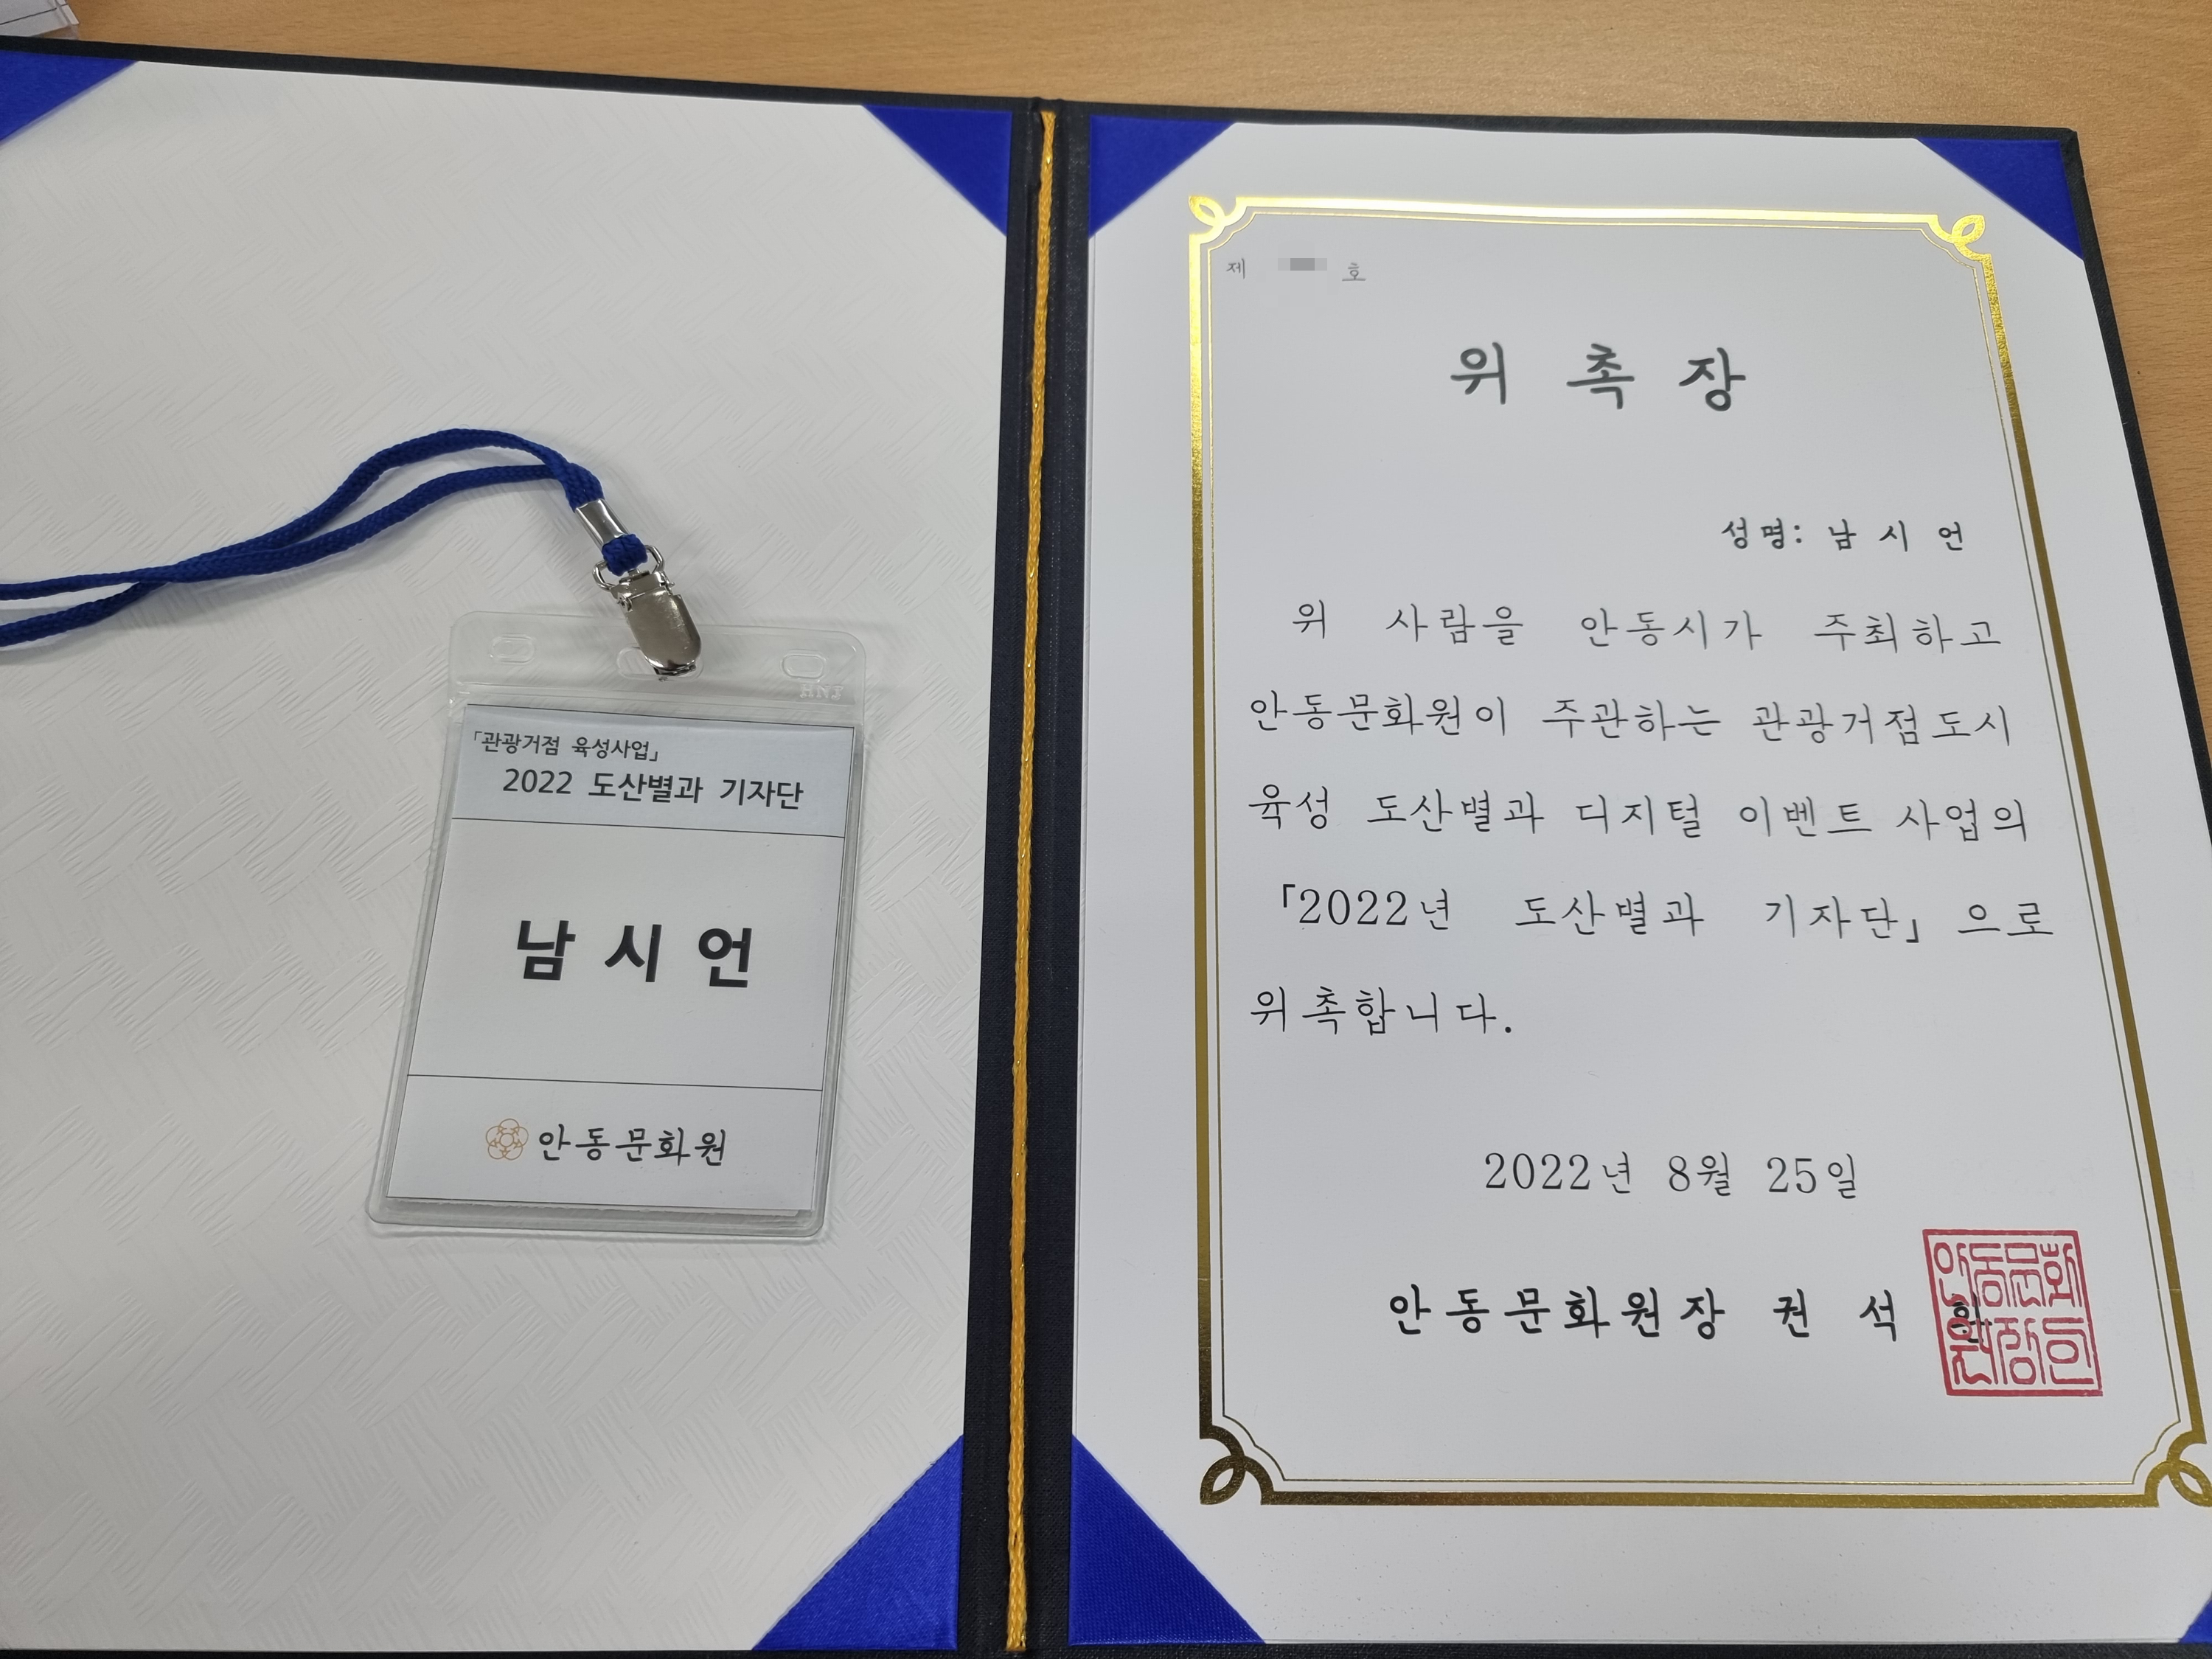 「관광거점 육성사업」
2022 도산별과 기자단
남 시 언
안동문화원
제 호
위 촉 장
성명: 남 시 언
위 사람을 안동시가 주최하고
안동문화원이 주관하는 관광거점도시
육성 도산별과 디지털 이벤트 사업의
「2022년 도산별과 기자단」 으로
위촉합니다.
2022년 8월 25일
안동문화원장 권 석
안동문화
원장인